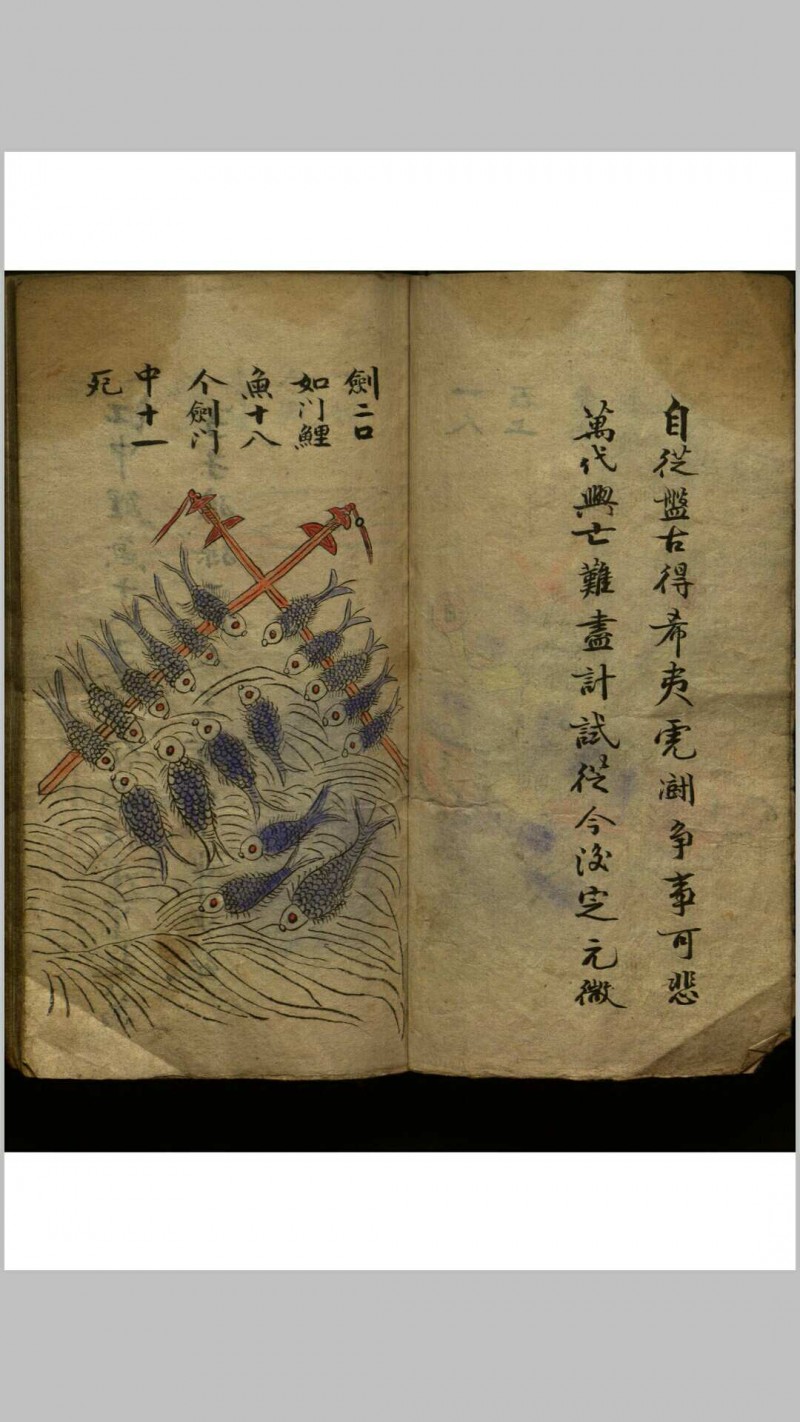 自從盤古得希夷虎鬪争事可悲
萬代興亡難盡計試從今後定元微
劍二口
如门鯉
魚十八
个劍门
中十一
死